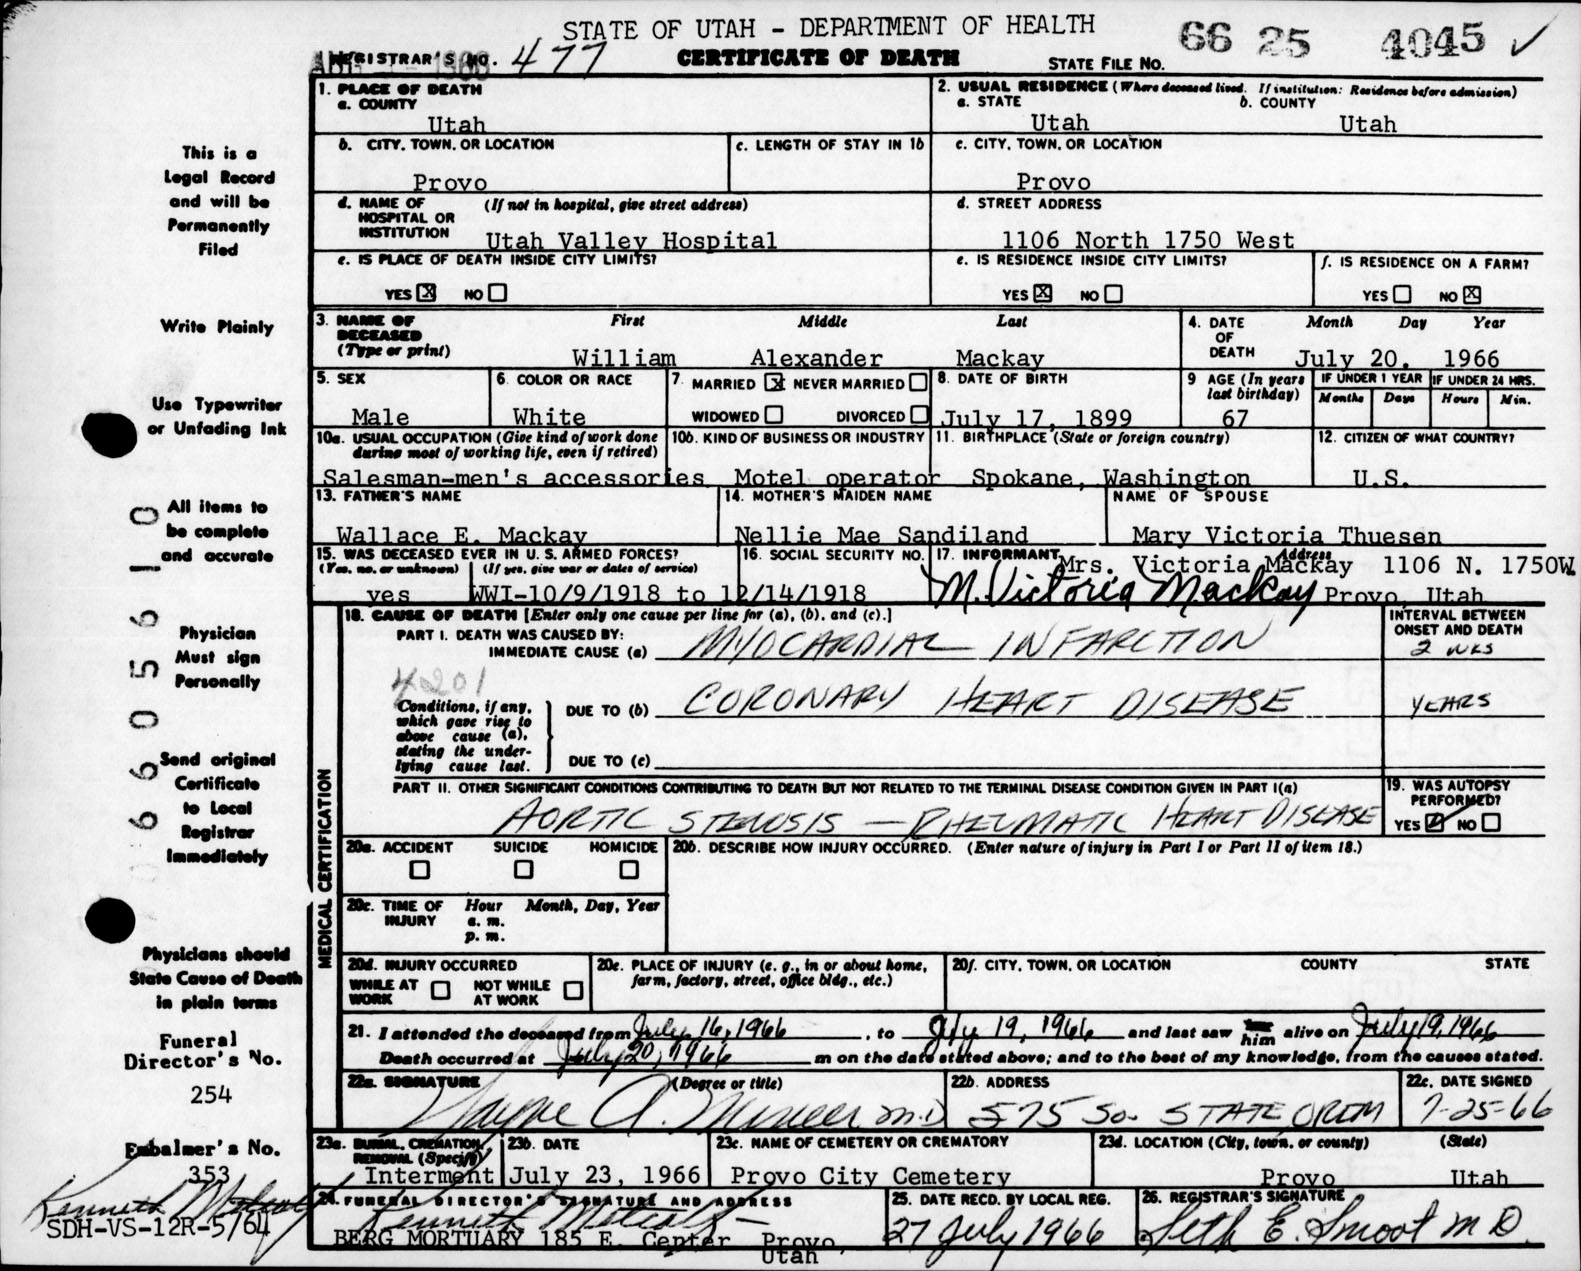 STATE OF UTAH - DEPARTMENT OF HEALTH
66 25 4045 ✓
REGISTRAR'S NO. 477 CERTIFICATE OF DEATH STATE FILE NO.
1. PLACE OF DEATH
a. COUNTY
Utah
2. USUAL RESIDENCE (Where deceased lived. If institution: Residence before admission)
a. STATE b. COUNTY
Utah Utah
b. CITY, TOWN, OR LOCATION c. LENGTH OF STAY IN 1b
Provo
c. CITY, TOWN, OR LOCATION
Provo
d. NAME OF (If not in hospital, give street address)
HOSPITAL OR
INSTITUTION Utah Valley Hospital
d. STREET ADDRESS
1106 North 1750 West
e. IS PLACE OF DEATH INSIDE CITY LIMITS?
YES ☒ NO ☐
e. IS RESIDENCE INSIDE CITY LIMITS?
YES ☒ NO ☐
f. IS RESIDENCE ON A FARM?
YES ☐ NO ☒
3. NAME OF DECEASED (Type or print) First Middle Last
William Alexander Mackay
4. DATE OF DEATH Month Day Year
July 20, 1966
5. SEX
Male
6. COLOR OR RACE
White
7. MARRIED ☒ NEVER MARRIED ☐
WIDOWED ☐ DIVORCED ☐
8. DATE OF BIRTH
July 17, 1899
9 AGE (In years last birthday)
67
IF UNDER 1 YEAR IF UNDER 24 HRS.
Months Days Hours Min.
10a. USUAL OCCUPATION (Give kind of work done
during most of working life, even if retired)
Salesman-men's accessories
10b. KIND OF BUSINESS OR INDUSTRY
Motel operator
11. BIRTHPLACE (State or foreign country)
Spokane, Washington
12. CITIZEN OF WHAT COUNTRY?
U.S.
13. FATHER'S NAME
Wallace E. Mackay
14. MOTHER'S MAIDEN NAME
Nellie Mae Sandiland
NAME OF SPOUSE
Mary Victoria Thuesen
15. WAS DECEASED EVER IN U. S. ARMED FORCES?
(Yes, no, or unknown) (If yes, give war or dates of service)
yes WWI-10/9/1918 to 12/14/1918
16. SOCIAL SECURITY NO.
17. INFORMANT Address
Mrs. Victoria Mackay 1106 N. 1750W.
M. Victoria Mackay Provo, Utah
MEDICAL CERTIFICATION
18. CAUSE OF DEATH [Enter only one cause per line for (a), (b), and (c).]
INTERVAL BETWEEN
ONSET AND DEATH
PART I. DEATH WAS CAUSED BY:
IMMEDIATE CAUSE (a) MYOCARDIAL INFARCTION 2 WKS
4201
Conditions, if any,
which gave rise to
above cause (a),
stating the under-
lying cause last.
DUE TO (b) CORONARY HEART DISEASE YEARS
DUE TO (c)
PART II. OTHER SIGNIFICANT CONDITIONS CONTRIBUTING TO DEATH BUT NOT RELATED TO THE TERMINAL DISEASE CONDITION GIVEN IN PART I(a)
AORTIC STENOSIS — RHEUMATIC HEART DISEASE
19. WAS AUTOPSY
PERFORMED?
YES ☑ NO ☐
20a. ACCIDENT SUICIDE HOMICIDE
☐ ☐ ☐
20b. DESCRIBE HOW INJURY OCCURRED. (Enter nature of injury in Part I or Part II of item 18.)
20c. TIME OF INJURY Hour Month, Day, Year
a. m.
p. m.
20d. INJURY OCCURRED
WHILE AT WORK ☐ NOT WHILE AT WORK ☐
20e. PLACE OF INJURY (e. g., in or about home,
farm, factory, street, office bldg., etc.)
20f. CITY, TOWN, OR LOCATION COUNTY STATE
21. I attended the deceased from July 16, 1966, to July 19, 1966 and last saw him alive on July 19, 1966
Death occurred at July 20, 1966 m on the date stated above; and to the best of my knowledge, from the causes stated.
22a. SIGNATURE (Degree or title)
Wayne A. M.D
22b. ADDRESS
575 So. STATE OREM
22c. DATE SIGNED
7-25-66
23a. BURIAL, CREMATION,
REMOVAL (Specify)
Interment
23b. DATE
July 23, 1966
23c. NAME OF CEMETERY OR CREMATORY
Provo City Cemetery
23d. LOCATION (City, town, or county) (State)
Provo Utah
24. FUNERAL DIRECTOR'S SIGNATURE AND ADDRESS
Kenneth Metcalf
BERG MORTUARY 185 E. Center Provo,
Utah
25. DATE RECD. BY LOCAL REG.
27 July 1966
26. REGISTRAR'S SIGNATURE
Seth E. Smoot M D.
This is a
Legal Record
and will be
Permanently
Filed
Write Plainly
Use Typewriter
or Unfading Ink
All items to
be complete
and accurate
Physician
Must sign
Personally
Send original
Certificate
to Local
Registrar
Immediately
Physicians should
State Cause of Death
in plain terms
Funeral
Director's No.
254
Embalmer's No.
353
Kenneth Metcalf
SDH-VS-12R-5/64